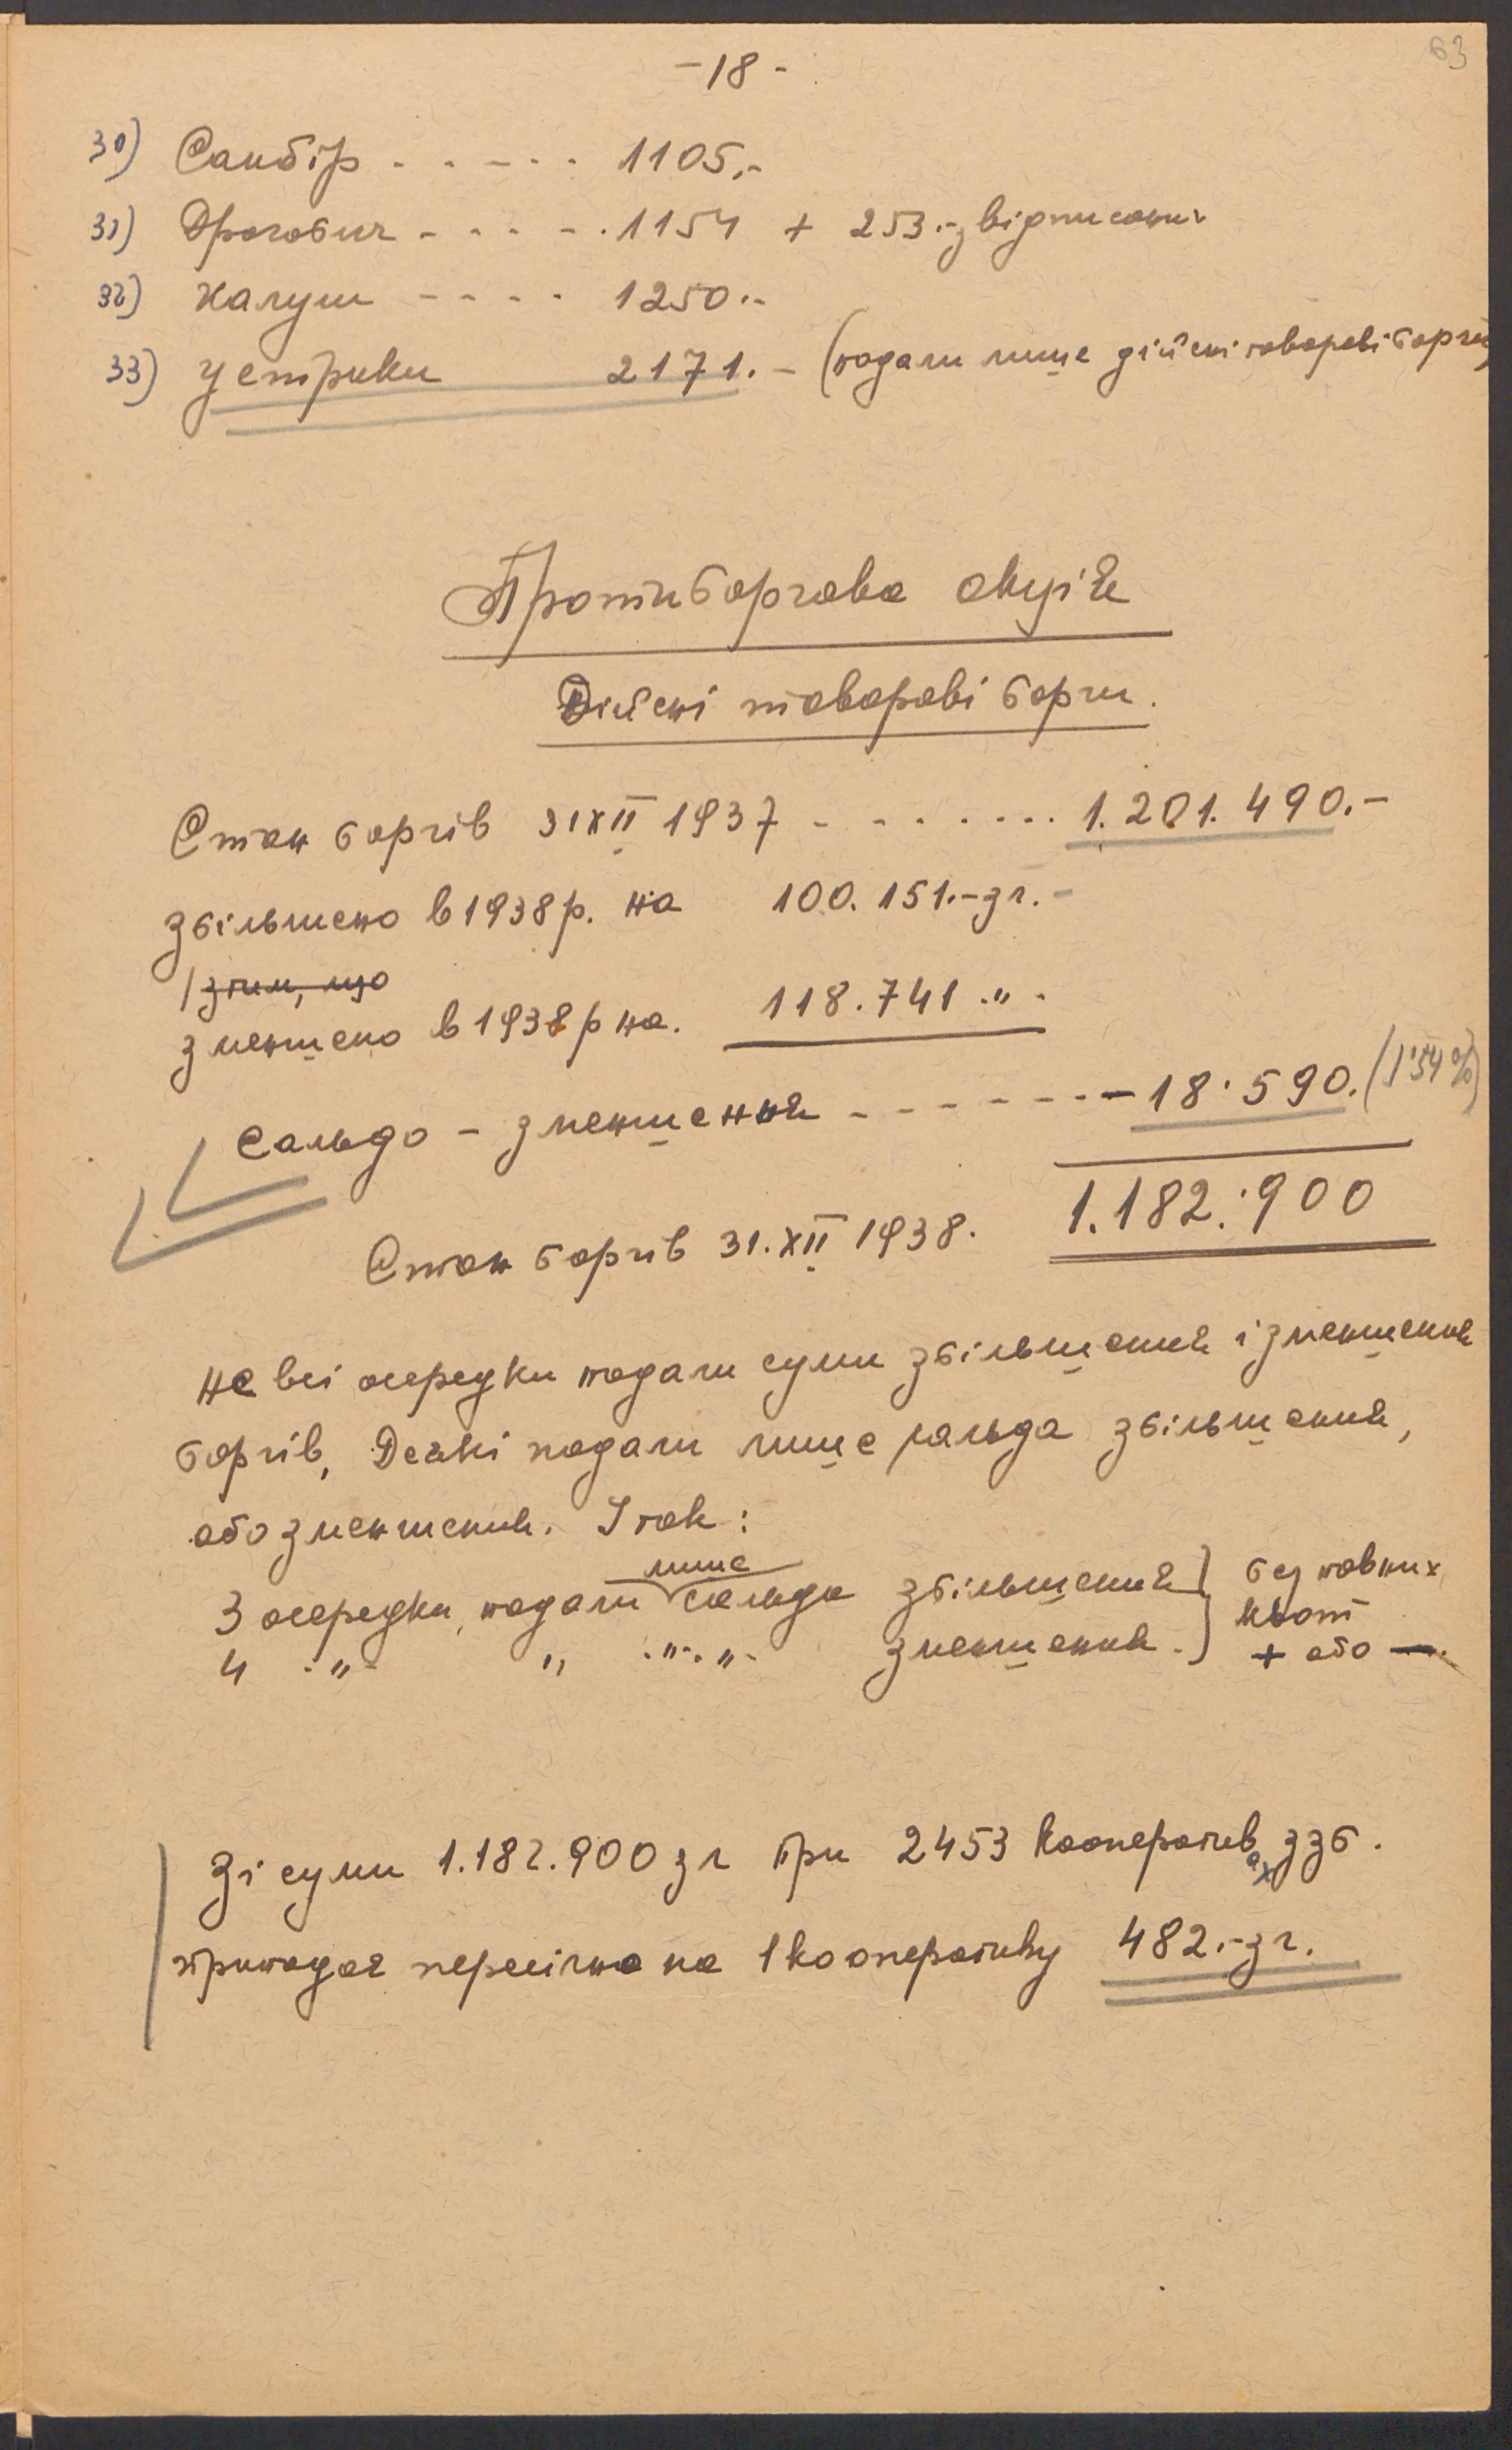 63
-18-
30) Самбір - - - - - 1105.-
31) Дрогобич - - - - . 1154 + 253.- звідписаних
32) Калуш - - - - 1250.-
33) Устрики 2171.- (подали лише дійсні товарові борги)
Протиборгова акція
Дійсні товарові борги.
Стан боргів 31 XII 1937 - - - - - - - 1.201.490.-
збільшено в 1938 р. на 100.151.- зл.-
/ з тим, що
зменшено в 1938 р на. 118.741 .„.
Сальдо - зменшення - - - - - - - 18.590. (1'54%)
Стан боргів 31. XII 1938. 1.182.900
Не всі осередки подали суми збільшення і зменшення
боргів, Деякі подали лише сальда збільшення,
або зменшення. І так:
лише
3 осередки, подали сальдо збільшення } без повних
4 -„- „ .„. „. зменшення. } квот
+ або -.
Зі суми 1.182.900 зл при 2453 кооперативах ззб.
припадає пересічно на 1 кооперативу 482.- зл.